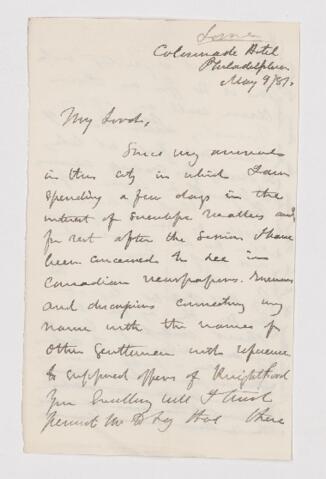 Lorne
Colonnade Hotel
Philadelphia
May 9/81.
My Lord,
Since my arrival
in this city in which I am
spending a few days in the
interest of scientific matters and
for rest after the session I have
been concerned to see in
Canadian newspapers. Rumours
and discussions connecting my
name with the names of
other gentlemen with reference
to supposed offers of Knighthood
Your Excellency will I trust
permit me to say that there